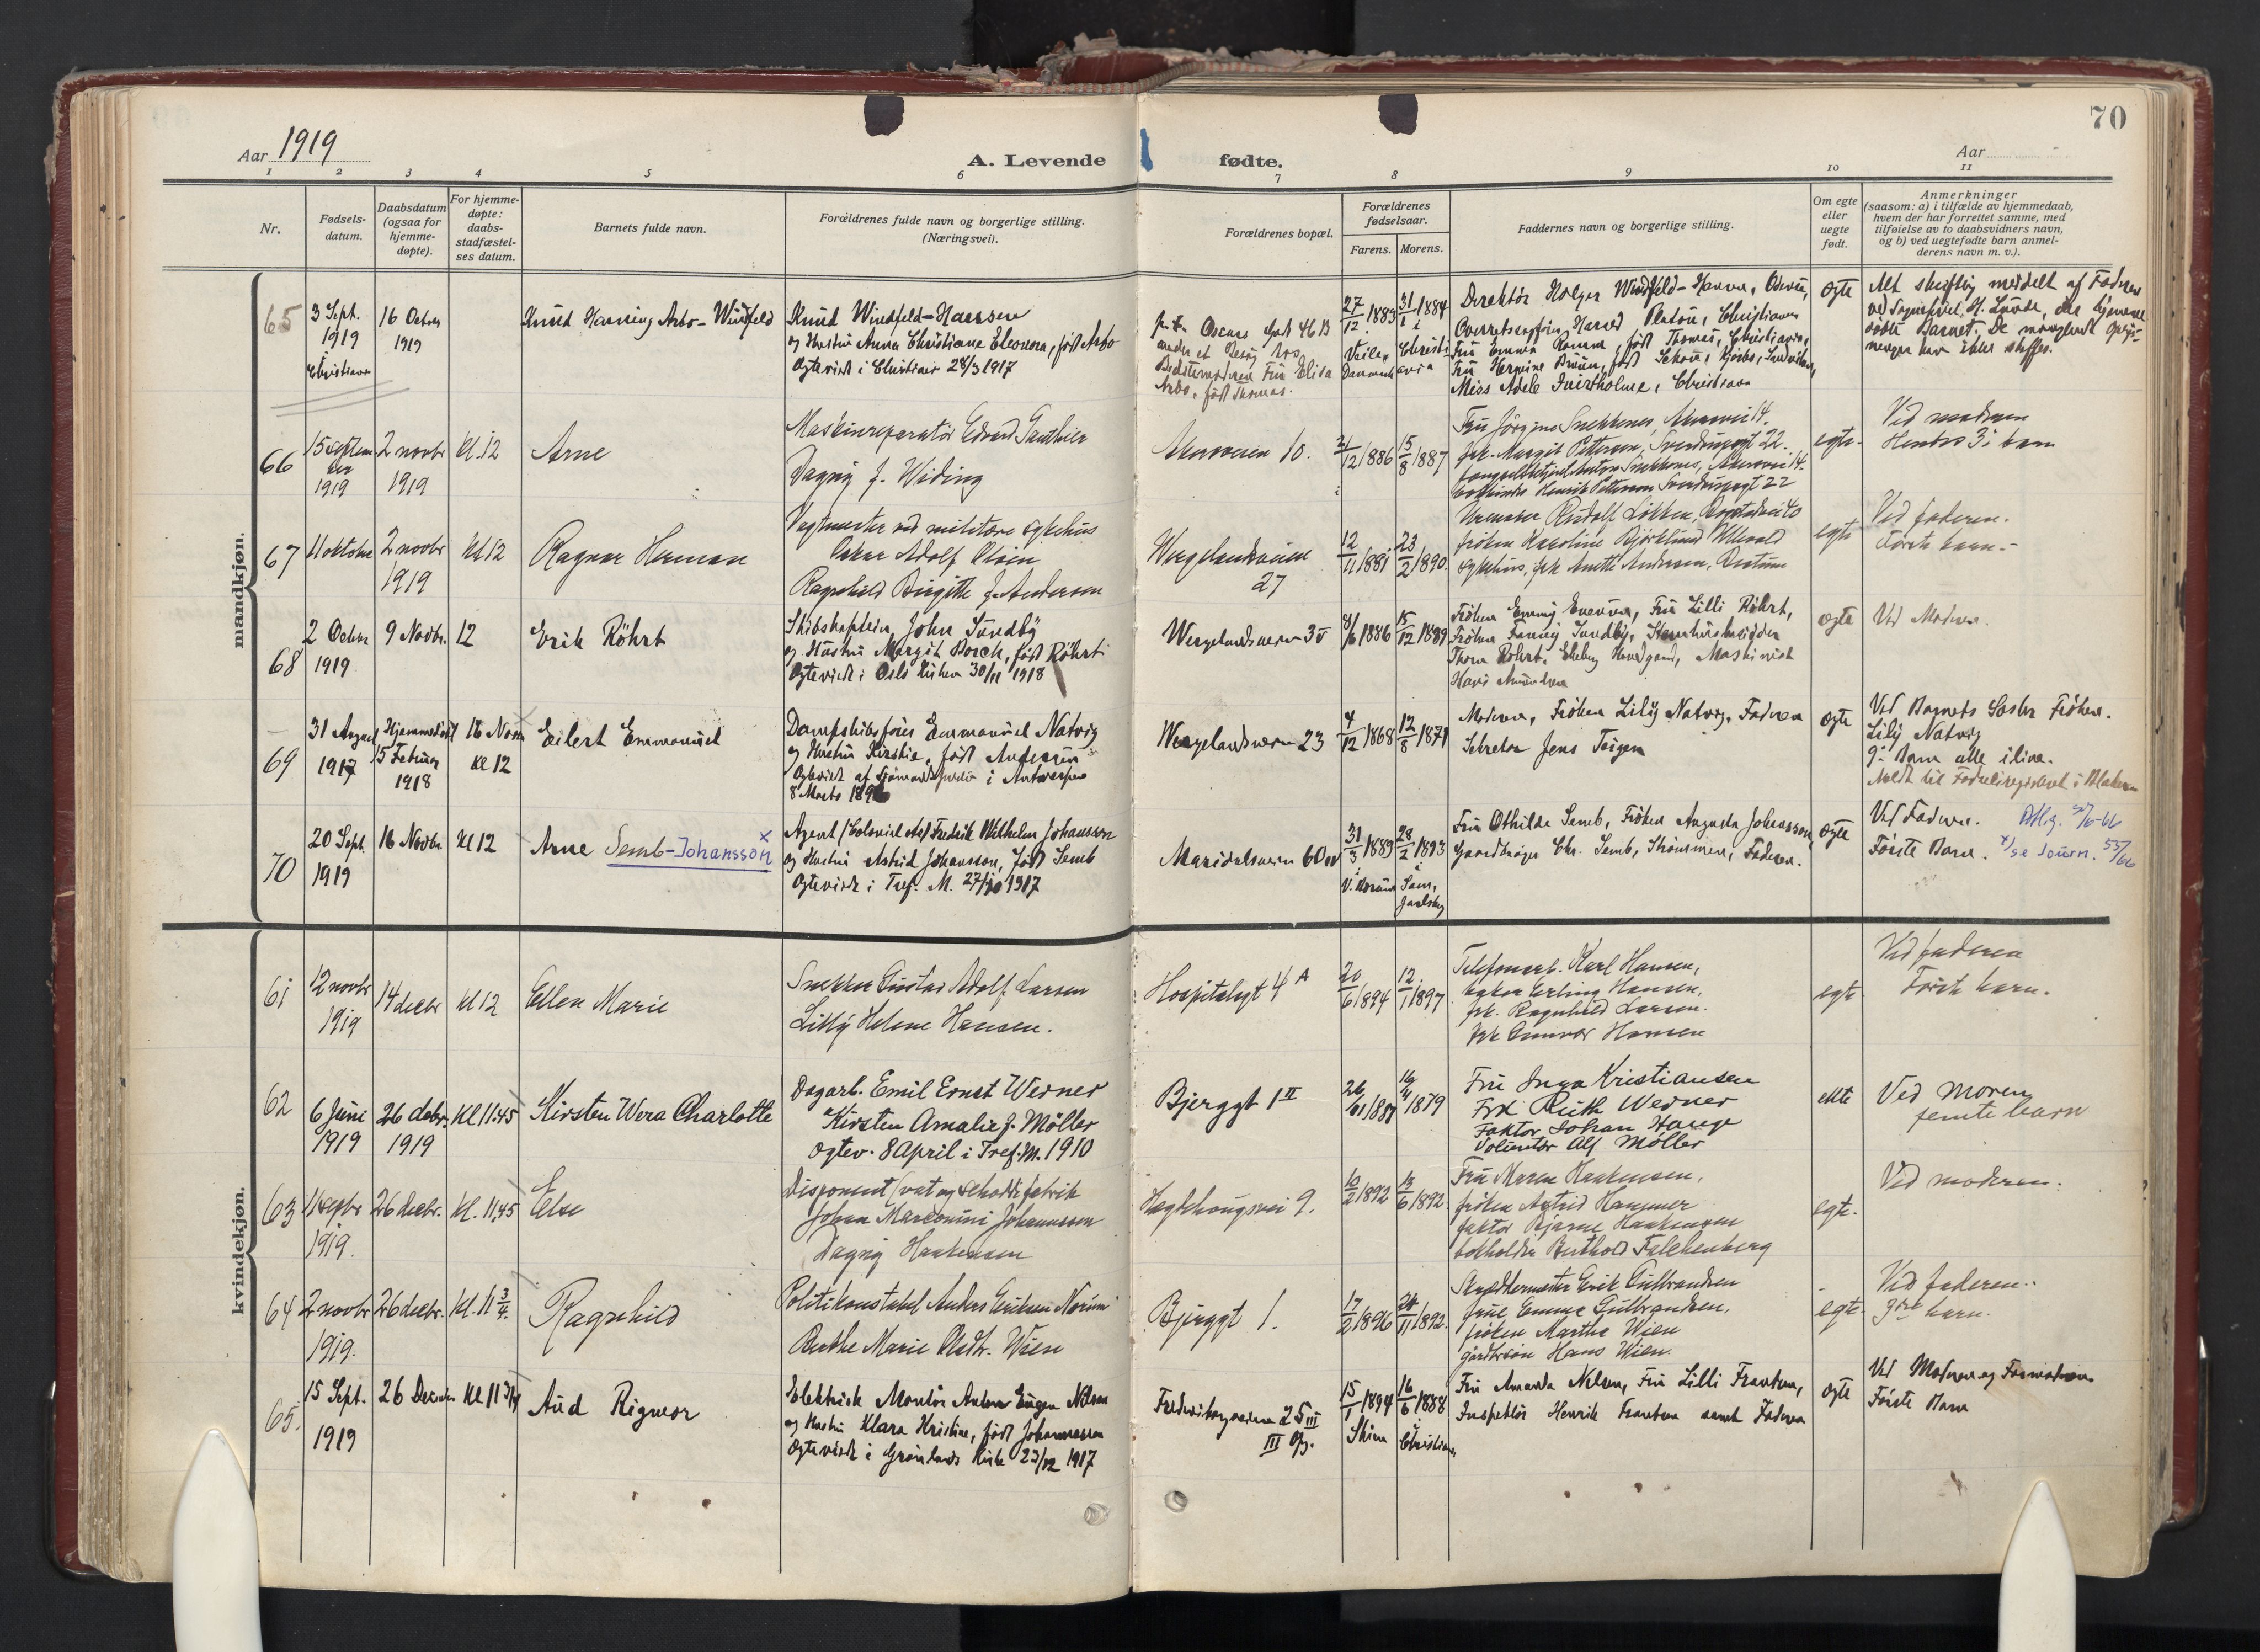 70
Aar 1919
A. Levende fødte.
Aar
1 2 3 4 5 6 7 8 9 10 11
Nr.
Fødsels-
datum.
Daabsdatum
(ogsaa for
hjemme-
døpte).
For hjemme-
døpte:
daabs-
stadfæstel-
ses datum.
Barnets fulde navn.
Forældrenes fulde navn og borgerlige stilling.
(Næringsvei).
Forældrenes bopæl.
Forældrenes
fødselsaar.
Farens. Morens.
Faddernes navn og borgerlige stilling.
Om egte
eller
uegte
født.
Anmerkninger
(saasom: a) i tilfælde av hjemmedaab,
hvem der har forrettet samme, med
tilføielse av to daabsvidners navn,
og b) ved uegtefødte barn anmel-
derens navn m. v.).
mandkjøn.
65
3 Sept.
1919
i
Christiania
16 Octbr
1919
Knud Henning Arbo-Windfeld
Knud Windfeld-Hanssen
og Hustru Anna Christiane Eleonora, født Arbo
Ogteviet i Christiania 28/3 1917
Oscars gad 46 B
under et Besøg hos
Bedstemoderen Fru Elisa
Arbo, født Thomas.
27/12 1883
Veile,
Danmark
31/1 1884
i
Christi-
ania
Direktør Holger Windfeld-Hansen, Odense,
Harald Platou, Christiania
Fru Emma, født Thomas, Christiania,
Fru Hermine Bruun, født
Miss Adele, Christiania
ogte
Alt skriftlig meddelt af Faderen
ved Sogneprest H. Lunde, der hjemme
døbte Barnet. De manglende oplys-
ninger kan ikke skaffes.
66
15 septem
ber
1919
2 novbr
1919
Kl. 12
Arne
Maskinreparatør Edvard Gauthier
Dagny f. Widing
Akersveien 10.
21/12 1886
15/8 1887
Fru Jørgine Snekkenes, Akersvei 14.
frk. Margit Pettersen, Sverdrupsgt 22.
Anton Snekkenes, Akersvei 14.
Henrik Pettersen Sverdrupsgt 22
egte.
Ved moderen
Hendes 3die barn
67
11 oktober
2 novbr
1919
Kl 12
Ragnar Herman
Vagtmester ved militære sykehus
Oskar Adolf Olsen
Ragnhild Birgitte f. Andersen
Wergelandsveien
27
12/11 1881
23/2 1890.
Urmaker Rudolf Løkken,
frøken Karoline Bjørklund Ullevaal
sykehus, frk Anette Andersen,
egte
Ved faderen.
Første barn.
68
2 Octbr
1919
9 Novbr.
12
Erik Röhrt
Skibskaptein John Sundby
og Hustru Margit Borch, født Röhrt
Ogteviet i Oslo Kirken 30/11 1918
Wergelandsveien 3 V
8/6 1886
15/12 1889
Frøken Emmy, Fru Lilli Röhrt,
Frøken Fanny Sundby,
Thora Röhrt, Ekeberg Hovedgaard, Maskinist
Hans Amundsen
ogte
Ved Moderen.
69
31 August
1917
Hjemmedøbt
15 Februar
1918
16 Novbr
Kl 12
Eilert Emmanuel
Dampskibsfører Emmanuel Natvig
og Hustru Kirstine, født Andersen
Ogteviet af Sjømandspresten i Antwerpen
8 Marts 1896
Wergelandsveien 23
4/12 1868
12/8 1871
Moderen, Frøken Lilly Natvig, Faderen
Sekretær Jens Teigen
ogte
Ved Barnets Søster Frøken
Lilly Natvig
9de Barn alle i live.
Meldt til Fødselsregisteret i
70
20 Sept.
1919
16 Novbr.
Kl 12
Arne Semb-Johansson x
Agent (Colonial etc) Fredrik Wilhelm Johansson
og Hustru Astrid Johansson, født Semb
Ogteviet i Tref. M. 27/10 1917
Maridalsveien 60
31/3 1889
i
28/2 1893
i
Sem,
Jarlsberg
Fru Othilde Semb, Frøken Augusta Johansson,
Gaardbruger Chr. Semb, Faderen.
ogte
Ved Faderen.
Første Barn. x) se Journ. 55/66
kvindekjøn.
61
12 novbr
1919
14 decbr
kl 12
Ellen Marie
Snekker Gustav Adolf Larsen
Lilly Helene Hansen.
Hospitalsgt 4 A
20/6 1894
12/1 1897
Telefonarb. Karl Hansen,
Erling Hansen,
frk. Ragnhild Larsen.
frk Gunvor Hansen
egte
Ved faderen
Første barn.
62
6 Juni
1919
26 debr.
1919
Kl 11.45
Kirsten Wera Charlotte
Dagarb. Emil Ernst Werner
Kirsten Amalie f. Möller
ogtev. 8 April i Tref. M. 1910
Bjerggt 1 II
26/01/1881
19/4/1879
Fru Inga Kristiansen
Frk Ruth Werner
Faktor Johan Hauge
Volontør Alf Møller
ekte
Ved Moren
femte barn
63
11 septbr
1919.
26 decbr.
Kl. 11,45
Else
Disponent (vat og fabrik
Johan Johannessen
Dagny Haakensen
Hægdehaugsvei 9.
10/2 1892
13/6 1892
Fru Maren Haakensen,
frøken Astrid Hammer
faktor Bjarne Haakensen
bokholder Berthold Falchenberg
egte.
Ved moderen.
64
2 novbr
1919.
26 decbr.
Kl. 11 3/4.
Ragnhild
Politikonstabel Anders Eriksen Norum
Berthe Marie Olsdtr. Wien
Bjerggt 1.
17/2 1896
24/11 1892.
Erik Gulbrandsen
frue Emma Gulbrandsen,
frøken Marthe Wien
Hans Wien.
egte.
Ved faderen.
barn.
65.
15 Sept.
1919
26 Decem
Kl 11 3/4
Aud Rigmor
Elektrisk Montör Anton Eugen Nilsen
og Hustru Klara Kristine, født Johannessen
Ogteviet i Grönlands Kirke 23/12 1917
Fredensborgveien 25 III
III Opg.
15/1 1894
Skien
16/6 1888
i
Christiania
Fru Amanda Nilsen, Fru Lilli Frantzen,
Inspektör Henrik Frantzen samt Faderen
ogte
Ved Moderen og Farmoderen
Første Barn